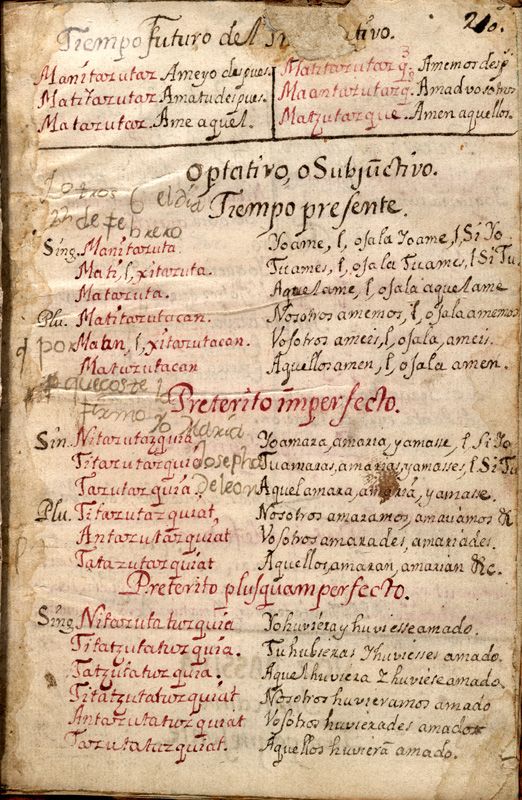 210.
Tiempo Futuro del tivo.
Manitazutaz. Ame yo despues.
Matitazutaz. Ama tu despues.
Matazutaz. Ame aquel.
Matitazutazq̃. Amemos desp̃
Maantazutazq̃. Amad vosotros
Matzutazque. Amen aquellos.
Optativo, o Subjũctivo.
Tiempo presente.
el dia
22 de Febrero
Sing. Manitazuta. Yo ame, l, ojala Yo ame, l, Si Yo
Mati, l, xitazuta. Tu ames, l, ojala Tu ames, l, Si Tu
Matazuta. Aquel ame, l, ojala aquel ame
Plu. Matitazutacan. Nosotros amemos, l, ojala amemos
por
Matan, l, xitazutacan. Vosotros ameis, l, ojala, ameis.
Matazutacan Aquellos amen, l, ojala amen.
que coste lo
firmo Yo Maria
Josepha
De leon
Preterito imperfecto.
Sin. Nitazutazquia Yo amara, amaria, y amasse, l, Si Yo
Titazutazquia Tu amaras, amarias, y amasses, l, Si Tu
Tazutazquia. Aquel amara, amaria, y amasse.
Plu. Titazutazquiat Nosotros amaramos, amariamos &
Antazutazquiat Vosotros amarades, amariades.
Tatazutazquiat Aquellos, amaran, amarian &c.
Preterito plusquamperfecto.
Sing. Nitazutatuzquia Yo huviera y huviesse amado.
Titatzutatuzquia. Tu hubieras Y huviesses amado.
Tatzutatuzquia. Aquel huviera Y huviese amado.
Titatzutatuzquiat Nosotros huvieramos amado
Antazutatuzquiat Vosotros huvierades amado
Tazutatuzquiat. Aquellos huvierã amado.